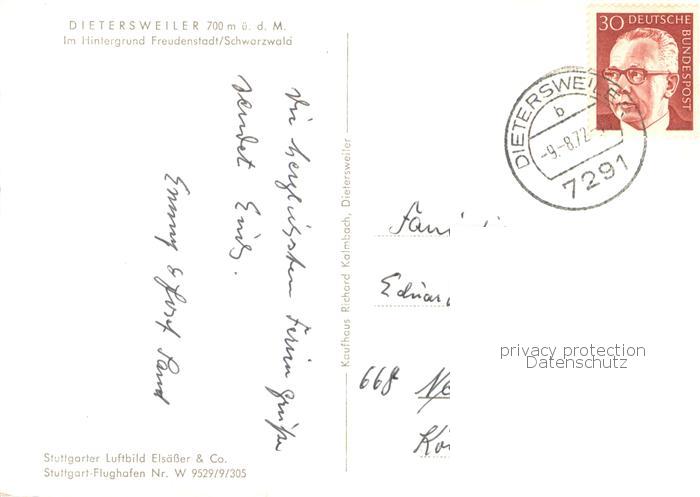 DIETERSWEILER 700 m ü. d. M.
Im Hintergrund Freudenstadt/Schwarzwald
Die herzlichsten Feriengrüße
sendet Euch
Emmy & Josef
Stuttgarter Luftbild Elsäßer & Co.
Stuttgart-Flughafen Nr. W 9529/9/305
Kaufhaus Richard Kalmbach, Dietersweiler
30 DEUTSCHE
BUNDESPOST
DIETERSWEILER
b
-9.-8.72
7291
Fami
Eduar
668
privacy protection
Datenschutz